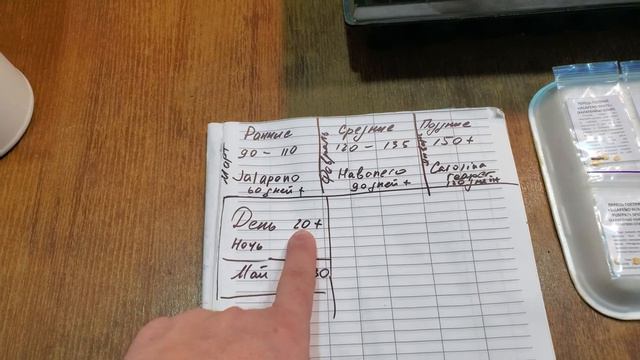 Март
Ранние
90 - 110
Jalapeno
60 дней +
Февраль
Средние
120 - 135
Habonero
90 дней +
Поздние
150 +
Carolina
120 дней+
День 20+
Ночь
Май 30